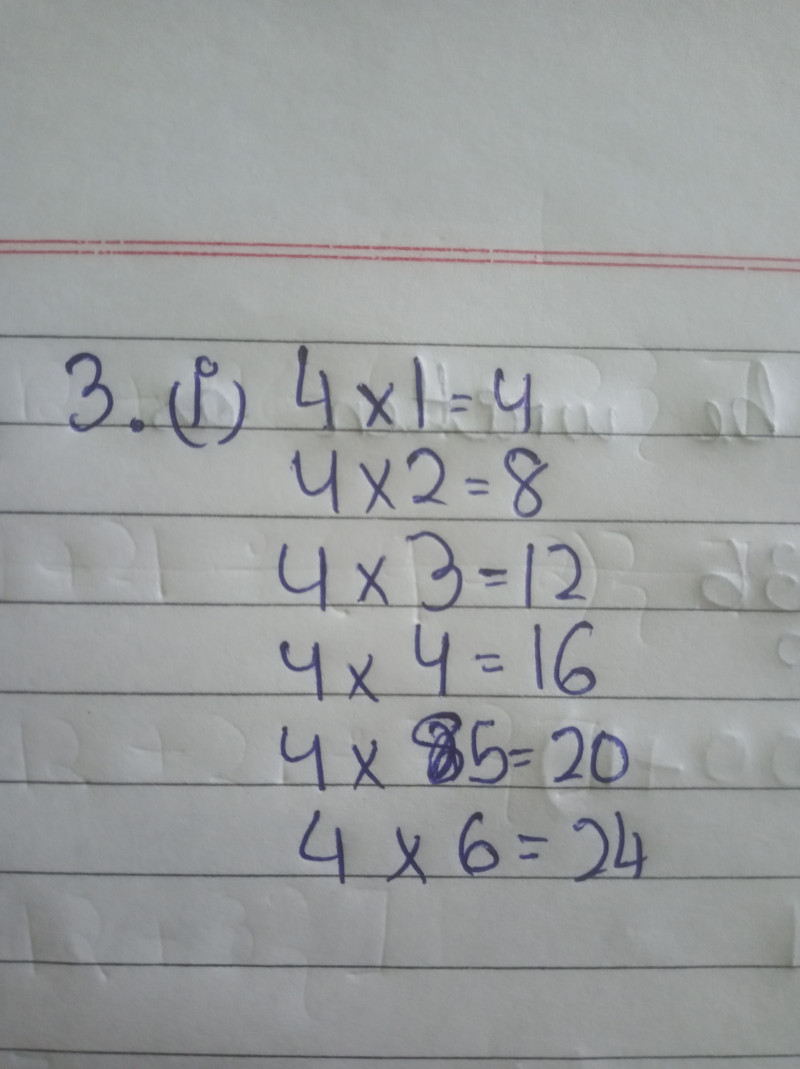 3. (i) 4 x 1 = 4
4 x 2 = 8
4 x 3 = 12
4 x 4 = 16
4 x 5 = 20
4 x 6 = 24